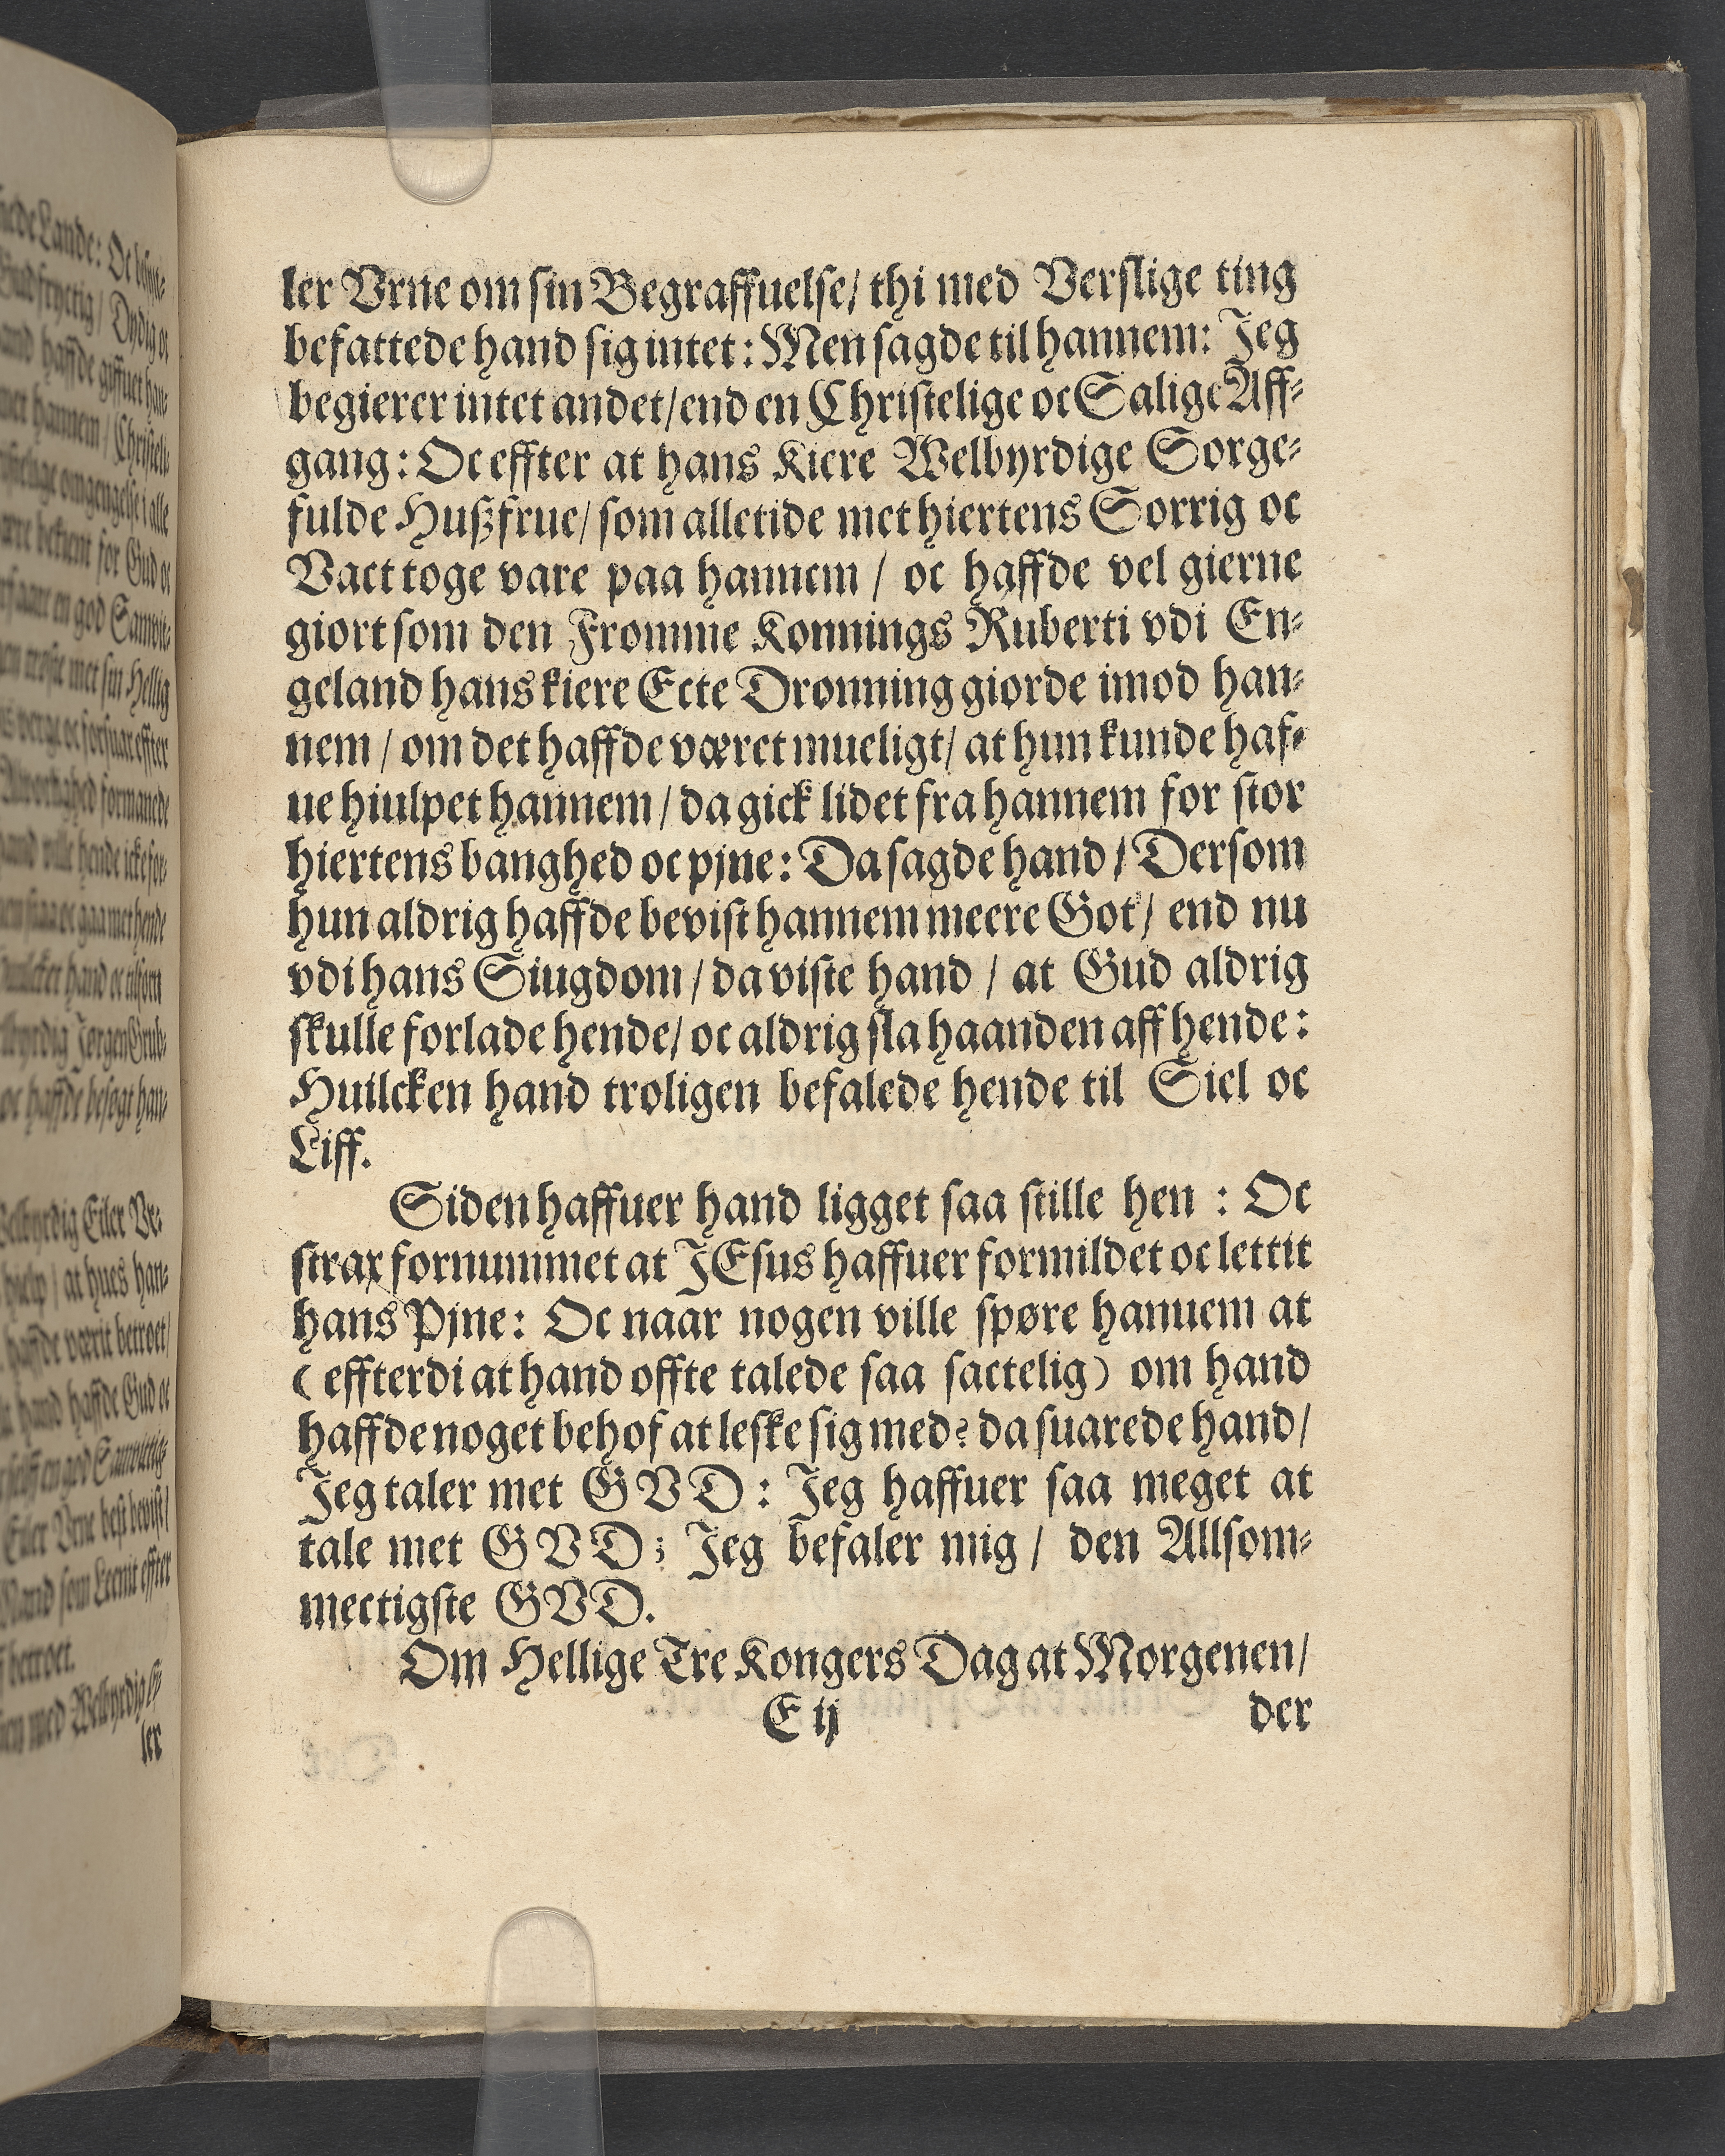 ler Vrne om sin Begraffuelse/ thi med Verslige ting
befattede hand sig intet: Men sagde til hannem: Jeg
begierer intet andet/ end en Christelige oc Salige Aff-
gang: Oc effter at hans Kiere Welbyrdige Sorge-
fulde Hußfrue/ som alletide met hiertens Sorrig oc
Vact toge vare paa hannem / oc haffde vel gierne
giort som den Fromme Konnings Ruberti vdi En-
geland hans kiere Ecte Drønning giorde imod han-
nem / om det haffde været mueligt/ at hun kunde haf-
ue hiulpet hannem / da gick lidet fra hannem for stor
hiertens banghed oc pjne: Da sagde hand / Dersom
hun aldrig haffde bevist hannem meere Got / end nu
vdi hans Siugdom / da viste hand / at Gud aldrig
skulle forlade hende/ oc aldrig sla haanden aff hende:
Huilcken hand troligen befalede hende til Siel oc
Liff.
Siden haffuer hand ligget saa stille hen : Oc
strax fornummet at JEsus haffuer formildet oc lettit
hans Pjne: Oc naar nogen ville spøre hannem at
( effterdi at hand offte talede saa sactelig) om hand
haffde noget behof at leske sig med? da suarede hand/
Jeg taler met GVD : Jeg haffuer saa meget at
tale met GVD ; Jeg befaler mig / den Allsom-
mectigste GVD.
Om Hellige Tre Kongers Dag at Morgenen/
E ij der